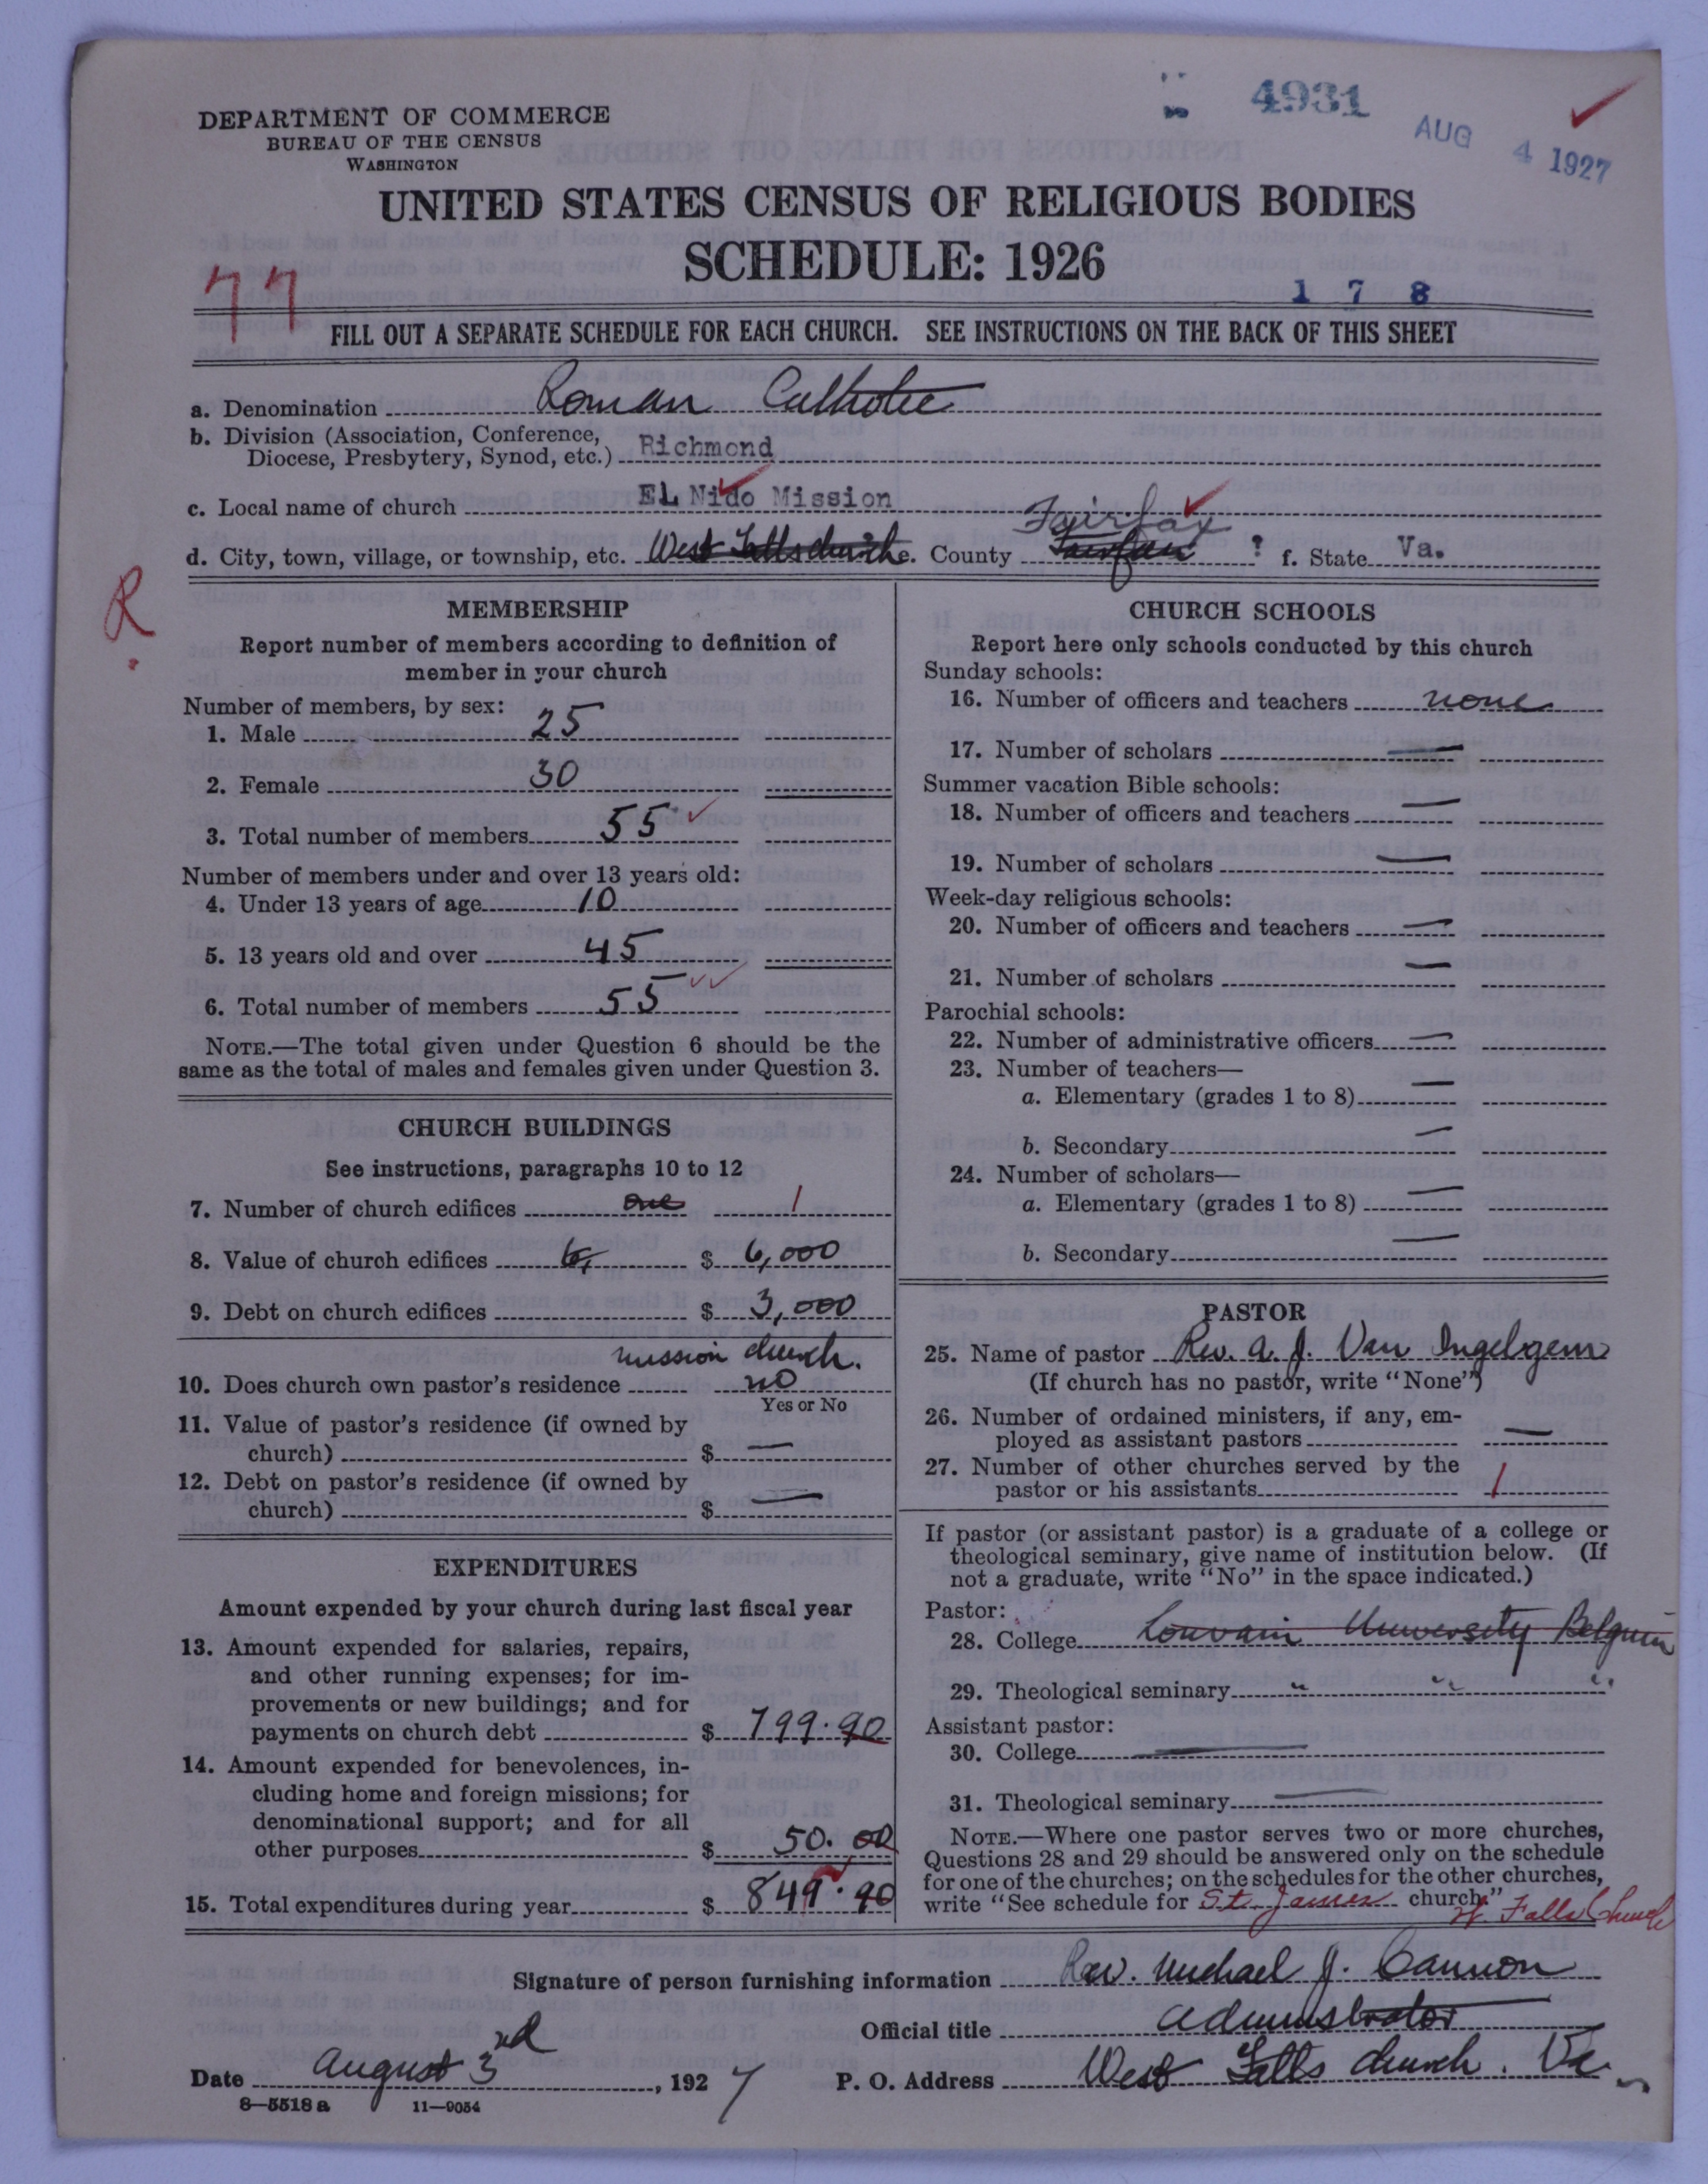 4931
AUG 4 1927
DEPARTMENT OF COMMERCE
BUREAU OF THE CENSUS
WASHINGTON
UNITED STATES CENSUS OF RELIGIOUS BODIES
SCHEDULE: 1926
77
1 7 8
FILL OUT A SEPARATE SCHEDULE FOR EACH CHURCH. SEE INSTRUCTIONS ON THE BACK OF THIS SHEET
a. Denomination Roman Catholic
b. Division (Association, Conference,
Diocese, Presbytery, Synod, etc.) Richmond
c. Local name of church EL Nido Mission
Fairfax
d. City, town, village, or township, etc. West Falls church e. County Fairfax ? f. State Va.
R.
MEMBERSHIP
Report number of members according to definition of
member in your church
Number of members, by sex:
1. Male 25
2. Female 30
3. Total number of members 55
Number of members under and over 13 years old:
4. Under 13 years of age 10
5. 13 years old and over 45
6. Total number of members 55
NOTE.—The total given under Question 6 should be the
same as the total of males and females given under Question 3.
CHURCH BUILDINGS
See instructions, paragraphs 10 to 12
7. Number of church edifices one 1
8. Value of church edifices 6, $ 6,000
9. Debt on church edifices $ 3,000
mission church.
10. Does church own pastor's residence no
Yes or No
11. Value of pastor's residence (if owned by
church) $ —
12. Debt on pastor's residence (if owned by
church) $ —
EXPENDITURES
Amount expended by your church during last fiscal year
13. Amount expended for salaries, repairs,
and other running expenses; for im-
provements or new buildings; and for
payments on church debt $ 799.90
14. Amount expended for benevolences, in-
cluding home and foreign missions; for
denominational support; and for all
other purposes $ 50.00
15. Total expenditures during year $ 849.90
CHURCH SCHOOLS
Report here only schools conducted by this church
Sunday schools:
16. Number of officers and teachers none
17. Number of scholars —
Summer vacation Bible schools:
18. Number of officers and teachers —
19. Number of scholars —
Week-day religious schools:
20. Number of officers and teachers —
21. Number of scholars —
Parochial schools:
22. Number of administrative officers —
23. Number of teachers—
a. Elementary (grades 1 to 8) —
b. Secondary —
24. Number of scholars—
a. Elementary (grades 1 to 8) —
b. Secondary —
PASTOR
25. Name of pastor Rev. A. J. Van Ingelgem
(If church has no pastor, write "None")
26. Number of ordained ministers, if any, em-
ployed as assistant pastors —
27. Number of other churches served by the
pastor or his assistants 1
If pastor (or assistant pastor) is a graduate of a college or
theological seminary, give name of institution below. (If
not a graduate, write "No" in the space indicated.)
Pastor:
28. College Louvain University Belgium
29. Theological seminary " " "
Assistant pastor:
30. College —
31. Theological seminary —
NOTE.—Where one pastor serves two or more churches,
Questions 28 and 29 should be answered only on the schedule
for one of the churches; on the schedules for the other churches,
write "See schedule for St. James church."
W. Falls Church
Signature of person furnishing information Rev. Michael J. Cannon
Official title administrator
Date august 3rd, 1927 P. O. Address West Falls church. Va.
8—5518 a 11—9054